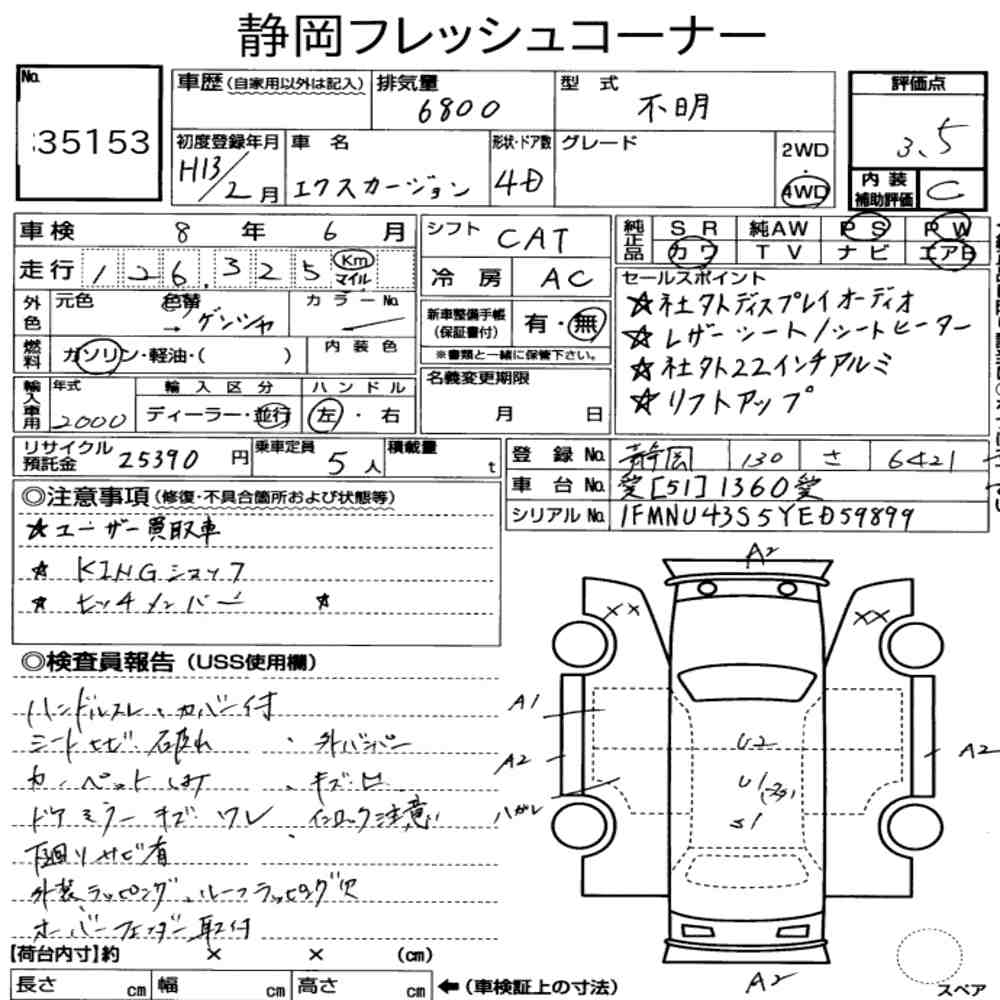 静岡フレッシュコーナー
No. 35153
車歴(自家用以外は記入) 排気量 6800 型式 不明 評価点 3.5
初度登録年月 H13/2月 車名 エクスカージョン 形状・ドア数 4D グレード 2WD・4WD 内装補助評価 C
車検 8年6月 シフト CAT 純正品 SR 純AW PS PW
走行 126,325 Km マイル 冷房 AC カワ TV ナビ エアB
外色 元色 色替 → ゲンシャ カラーNo. 新車整備手帳(保証書付) 有・無
※書類と一緒に保管下さい。
セールスポイント
☆社外ディスプレイオーディオ
☆レザーシート/シートヒーター
☆社外22インチアルミ
☆リフトアップ
燃料 ガソリン・軽油・( ) 内装色
輸入車用 年式 2000 輸入区分 ディーラー・並行 ハンドル 左・右
名義変更期限 月 日
リサイクル預託金 25390円 乗車定員 5人 積載量 t
登録No. 静岡 130 さ 6421
車台No. 愛[51]1360愛
シリアルNo. 1FMNU43S5YED59899
◎注意事項(修復・不具合箇所および状態等)
☆ユーザー買取車
☆ KINGショック
☆ ヒッチメンバー ☆
◎検査員報告(USS使用欄)
ハンドルスレ、カバー付
シートヒビ・破れ 、外バンパー
カーペットしけ 、キズ・凹
ドアミラーキズ・ワレ 、インロック注意
下回りサビ有
外装ラッピング、ルーフラッピング穴
オーバーフェンダー取付
A2
XX XX
A1
A2 U2 A2
U1
ハガレ S1
A2
【荷台内寸】約 × × (cm)
長さ cm 幅 cm 高さ cm ←(車検証上の寸法)
スペア